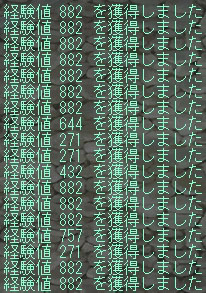 経験値 882 を獲得しました
経験値 882 を獲得しました
経験値 882 を獲得しました
経験値 882 を獲得しました
経験値 882 を獲得しました
経験値 882 を獲得しました
経験値 882 を獲得しました
経験値 644 を獲得しました
経験値 271 を獲得しました
経験値 271 を獲得しました
経験値 432 を獲得しました
経験値 882 を獲得しました
経験値 882 を獲得しました
経験値 882 を獲得しました
経験値 757 を獲得しました
経験値 271 を獲得しました
経験値 882 を獲得しました
経験値 882 を獲得しました